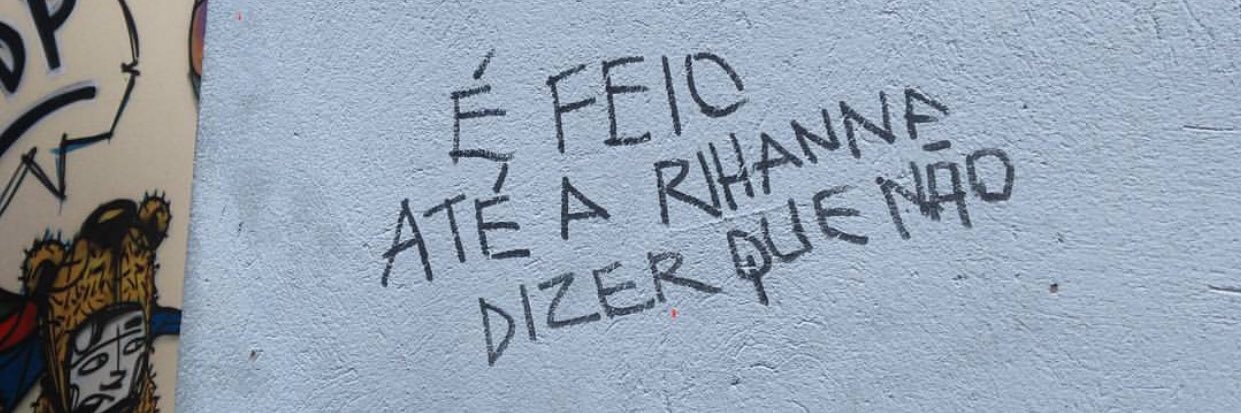 É FEIO
ATÉ A RIHANNA
DIZER QUE NÃO